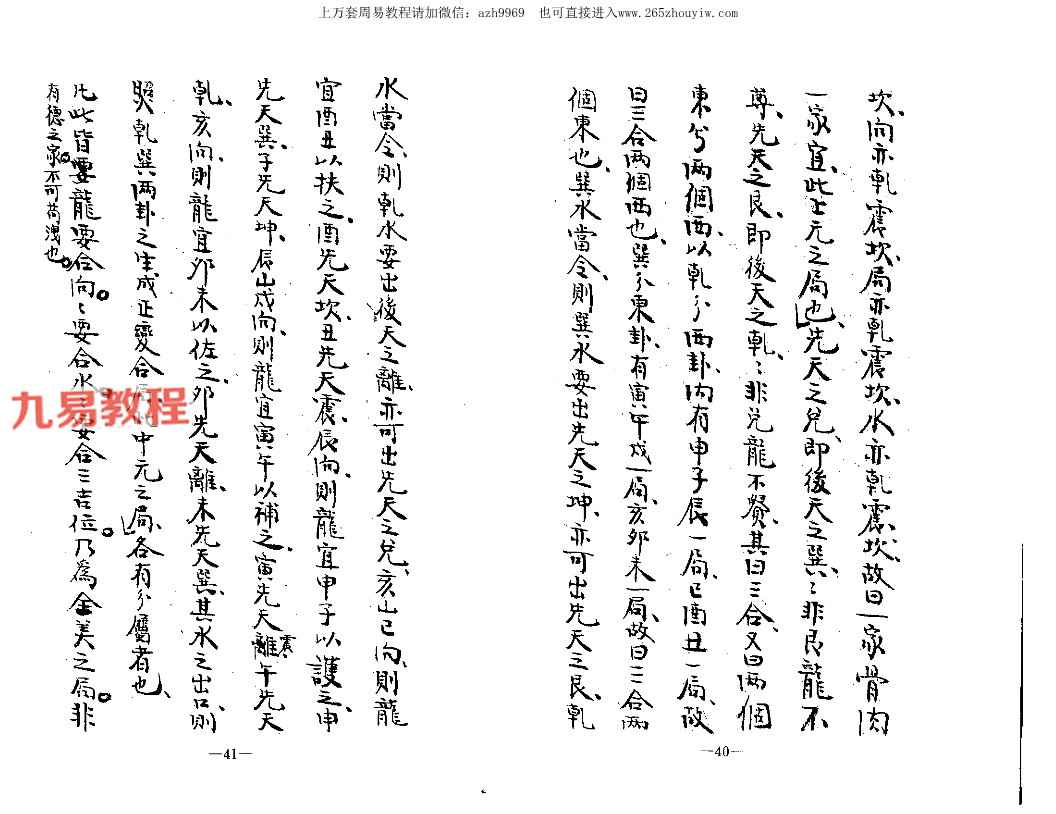 上万套周易教程请加微信：azh9969　也可直接进入www.265zhouyiw.com
坎、向亦乾震坎、局亦乾震坎、水亦乾震坎、故曰一家骨肉
一家宜、此上元之局也、先天之兌、即後天之巽、巽非艮龍不
尊、先天之艮、即後天之乾、乾非兌龍不貴、其曰三合、又曰兩個
東兮兩個西、以乾兮西卦、內有申子辰一局、巳酉丑一局、故
曰三合兩個西也、巽兮東卦、有寅午戌一局、亥卯未一局、故曰三合兩
個東也、巽水當令、則巽水要出先天之坤、亦可出先天之艮、乾
—40—
水當令、則乾水要出後天之離、亦可出先天之兌、亥山巳向、則龍
宜酉丑以扶之、酉先天坎、丑先天震、辰向、則龍宜申子以護之、申
先天巽、子先天坤、辰山戌向、則龍宜寅午以補之、寅先天離震午先天
乾、亥向、則龍宜卯未以佐之、卯先天離、未先天巽、其水之出口、則
照乾巽兩卦之生成正變合局、此中元之局、各有分屬者也、
凡此皆要龍要合向、〻要合水、〻要合三吉位、乃為全美之局、非
有德之家、不可苟洩也
—41—
九易教程